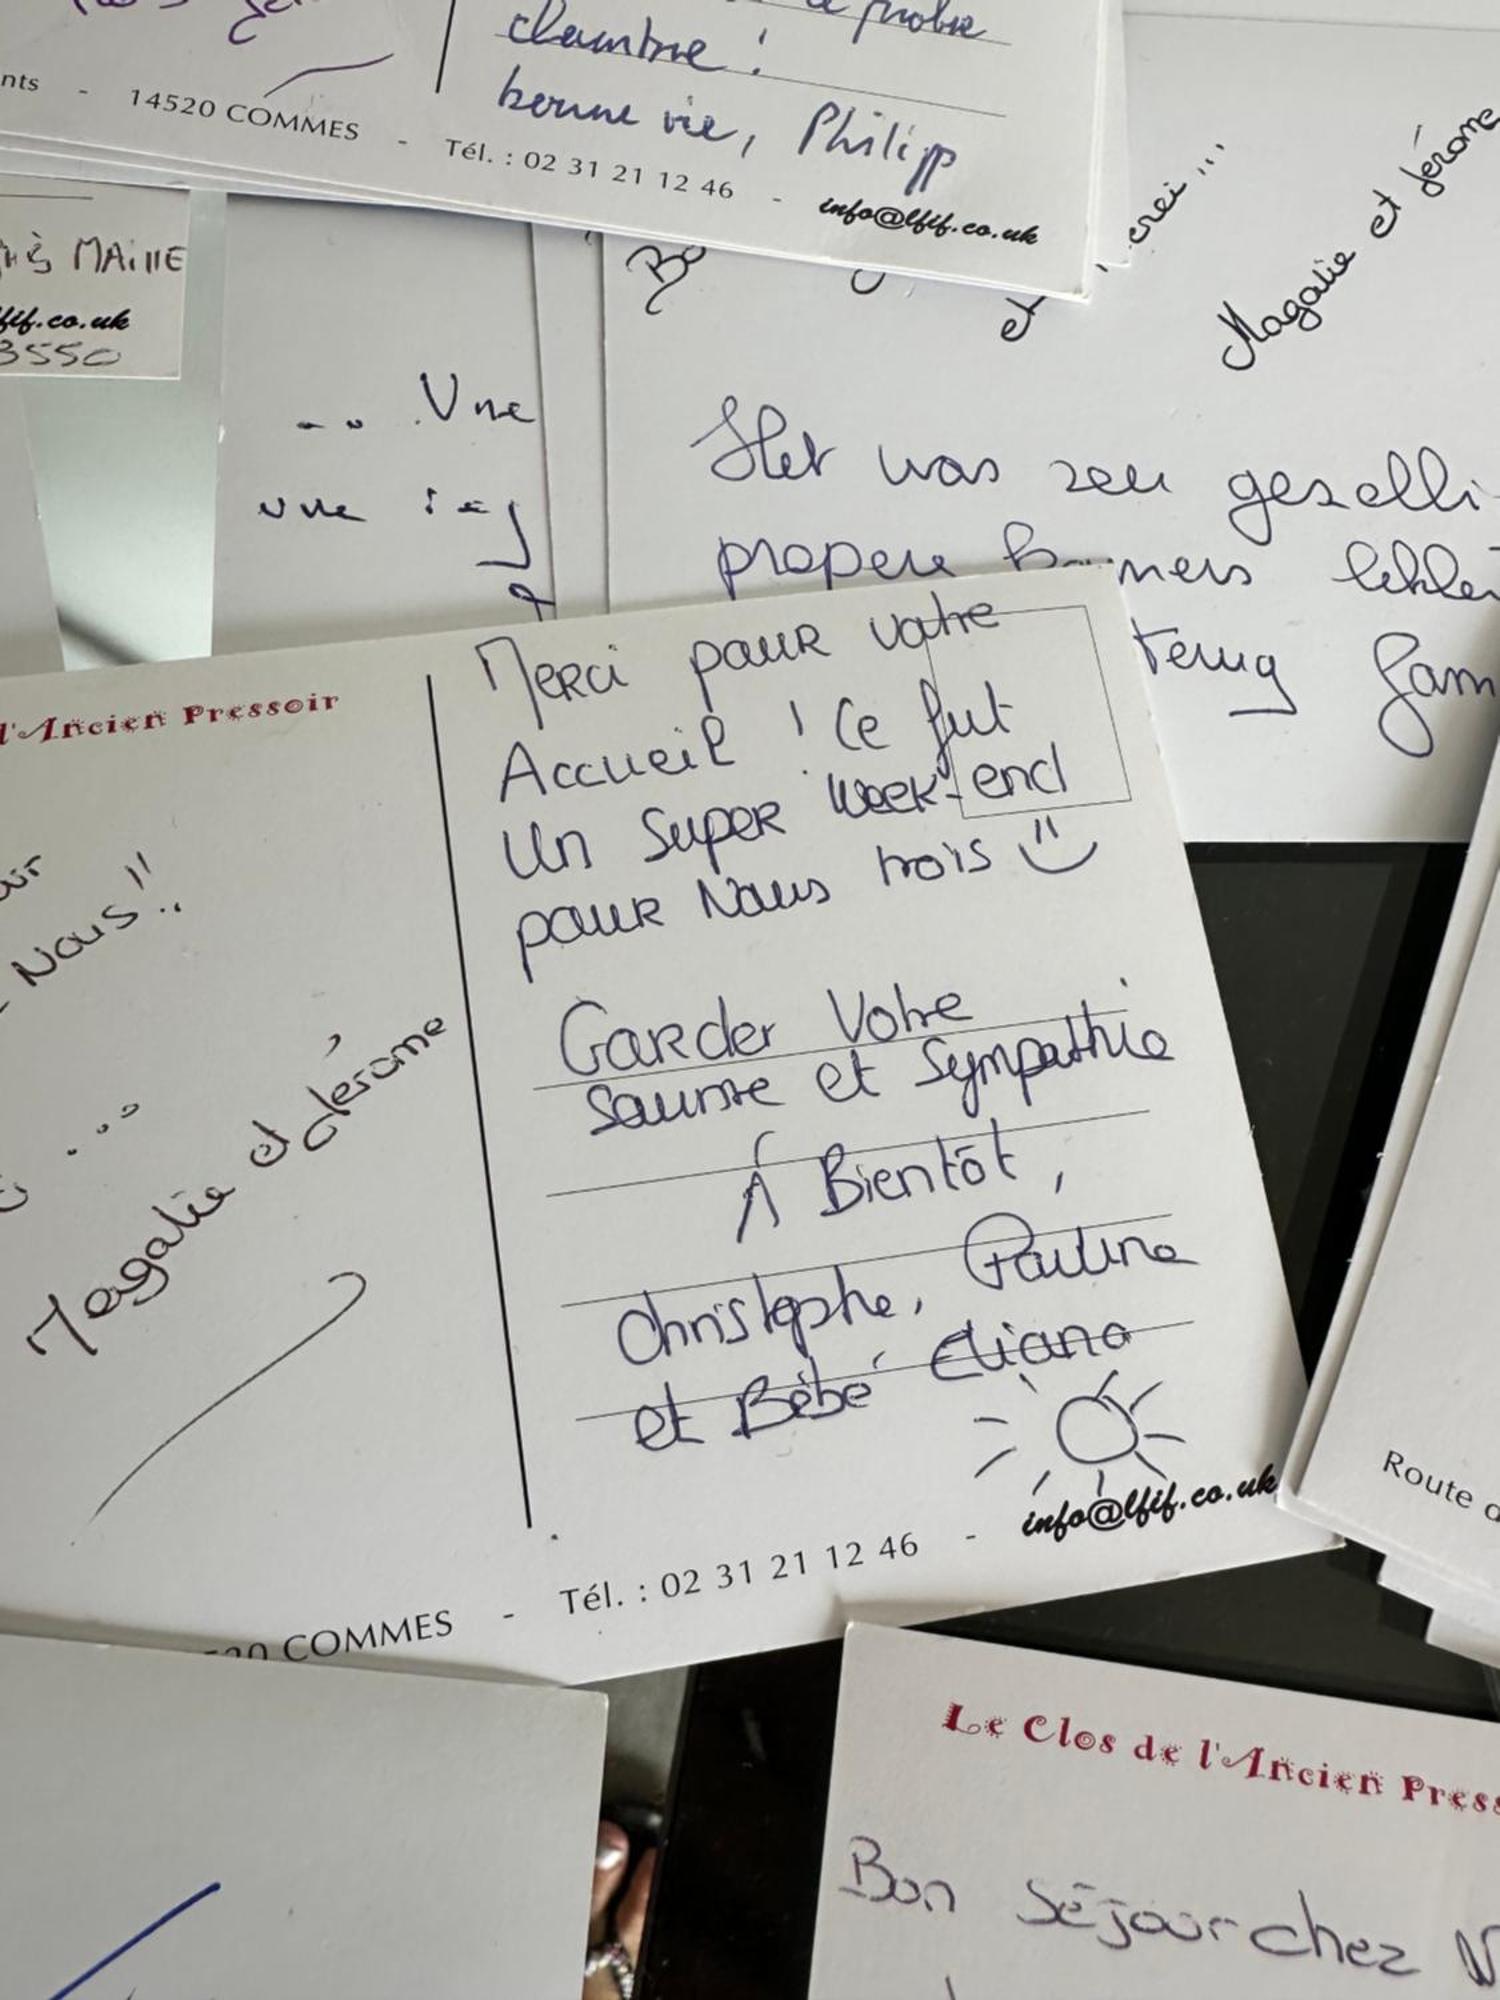 chambre !
bonne vie, Philipp
nts - 14520 COMMES - Tél. : 02 31 21 12 46 - info@lfif.co.uk
MAILLE
lfif.co.uk
3550
... Une
une
et
Magalie et Jérôme
Het was zeer gezelli
propere kamers lekke
terug
l'Ancien Pressoir
Nous !!
...
Magalie et Jérome
Merci pour votre
Accueil ! Ce fut
Un Super week-end
pour Nous trois
Garder Votre
Sourire et Sympathie
À Bientôt,
Christophe, Pauline
et Bébé Eliano
COMMES - Tél. : 02 31 21 12 46 - info@lfif.co.uk
Route d
Le Clos de l'Ancien Press
Bon Séjour chez N